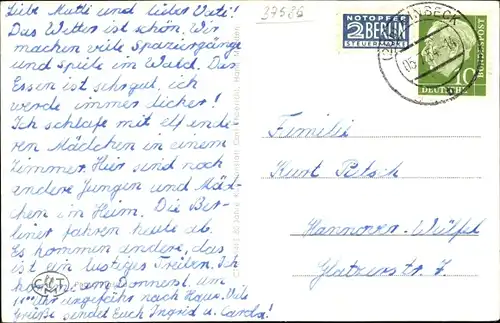 Liebe Mutti und lieber Vati!
Das Wetter ist schön. Wir
machen viele Spaziergänge
und spiele im Wald. Das
Essen ist sehr gut, ich
werde immer dicker!
Ich schlafe mit elf ande
ren Mädchen in einem
Zimmer. Hier sind noch
andere Jungen und Mäd-
chen im Heim. Die Ber-
liner fahren heute ab.
Es kommen andere, das
ist ein lustiges Treiben. Ich
komme am Donnerst. um
Uhr ungefähr nach Haus. Viele
Grüße sendet Euch Ingrid u. Carola!
37586
NOTOPFER
2 BERLIN
STEUERMARKE
10
DEUTSCHE
BUNDESPOST
Familie
Kurt Petsch
Hannover-Wülfel
Glatzerstr. 7